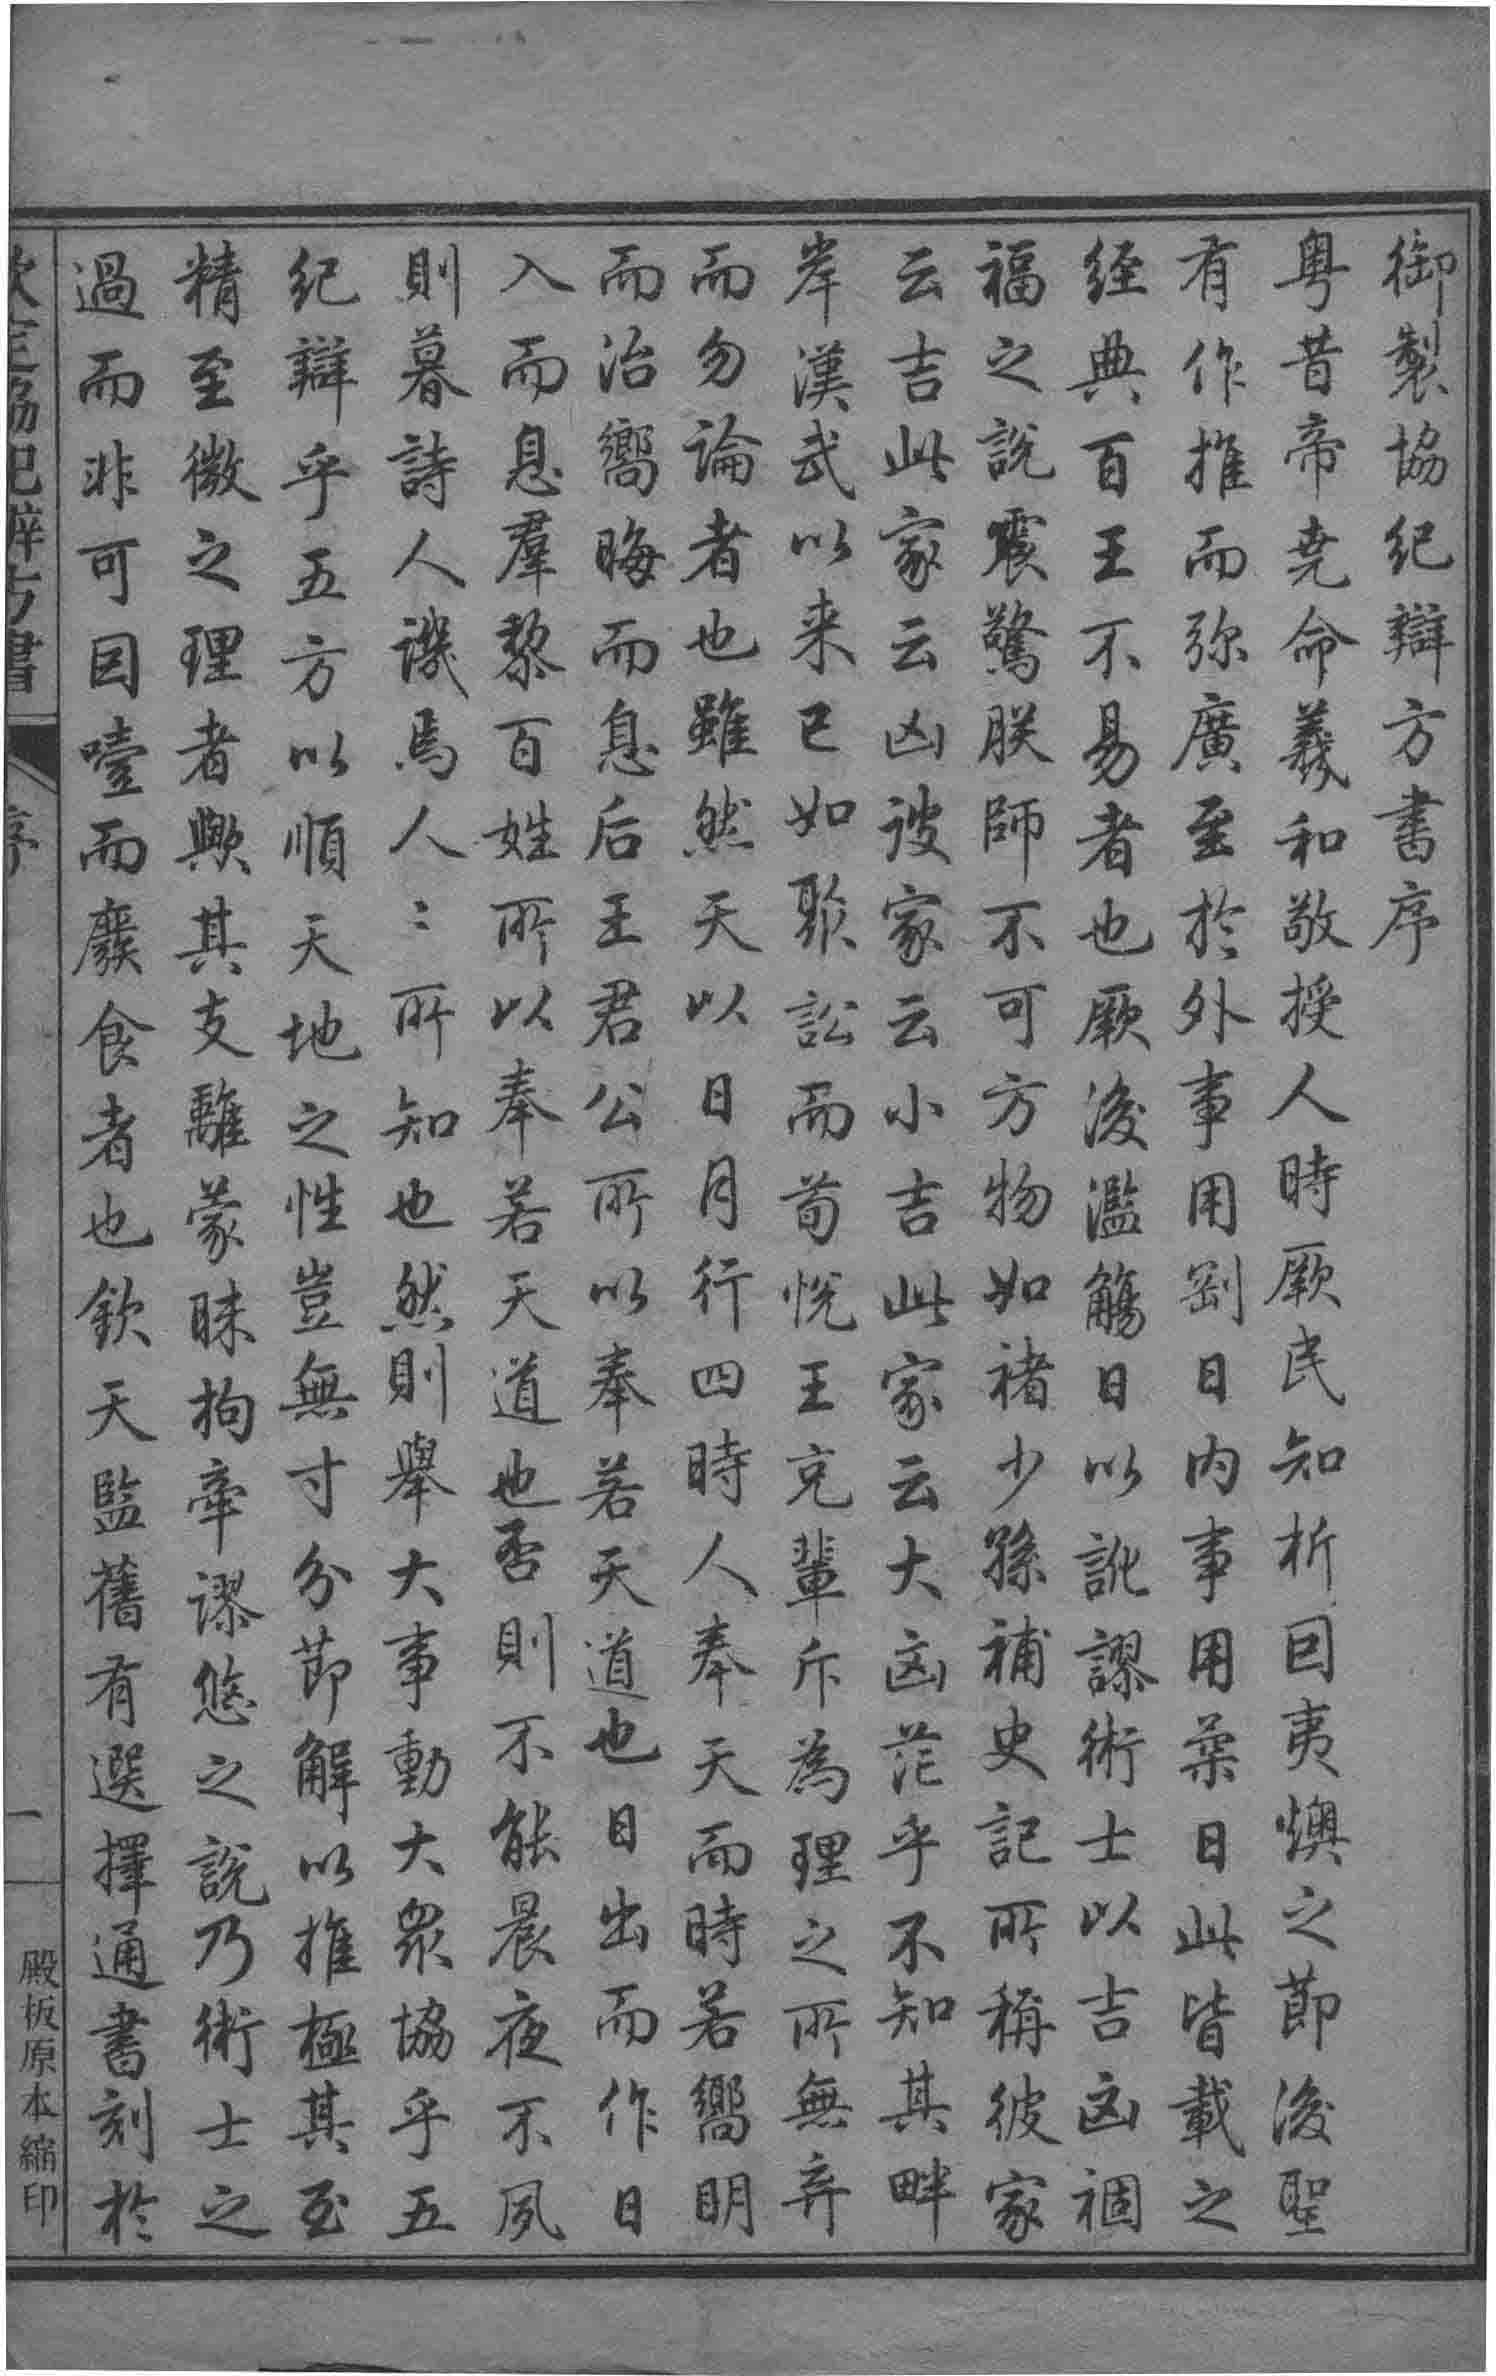 御製協紀辯方書序
粵昔帝堯命羲和敬授人時厥民知析因夷燠之節後聖
有作推而弥廣至於外事用剛日内事用柔日此皆載之
経典百王不易者也厥後濫觴日以訛謬術士以吉凶禍
福之說震驚朕師不可方物如褚少孫補史記所稱彼家
云吉此家云凶彼家云小吉此家云大凶茫乎不知其畔
岸漢武以来已如聚訟而荀悅王充輩斥為理之所無弃
而勿論者也雖然天以日月行四時人奉天而時若嚮明
而治嚮晦而息后王君公所以奉若天道也日出而作日
入而息羣黎百姓所以奉若天道也否則不能晨夜不夙
則暮詩人譏焉人〻所知也然則舉大事動大衆協乎五
紀辯乎五方以順天地之性豈無寸分節解以推極其至
精至微之理者歟其支離蒙昧拘牽謬悠之說乃術士之
過而非可因噎而廢食者也欽天監舊有選擇通書刻於
欽定協紀辨方書
序
一
殿板原本縮印